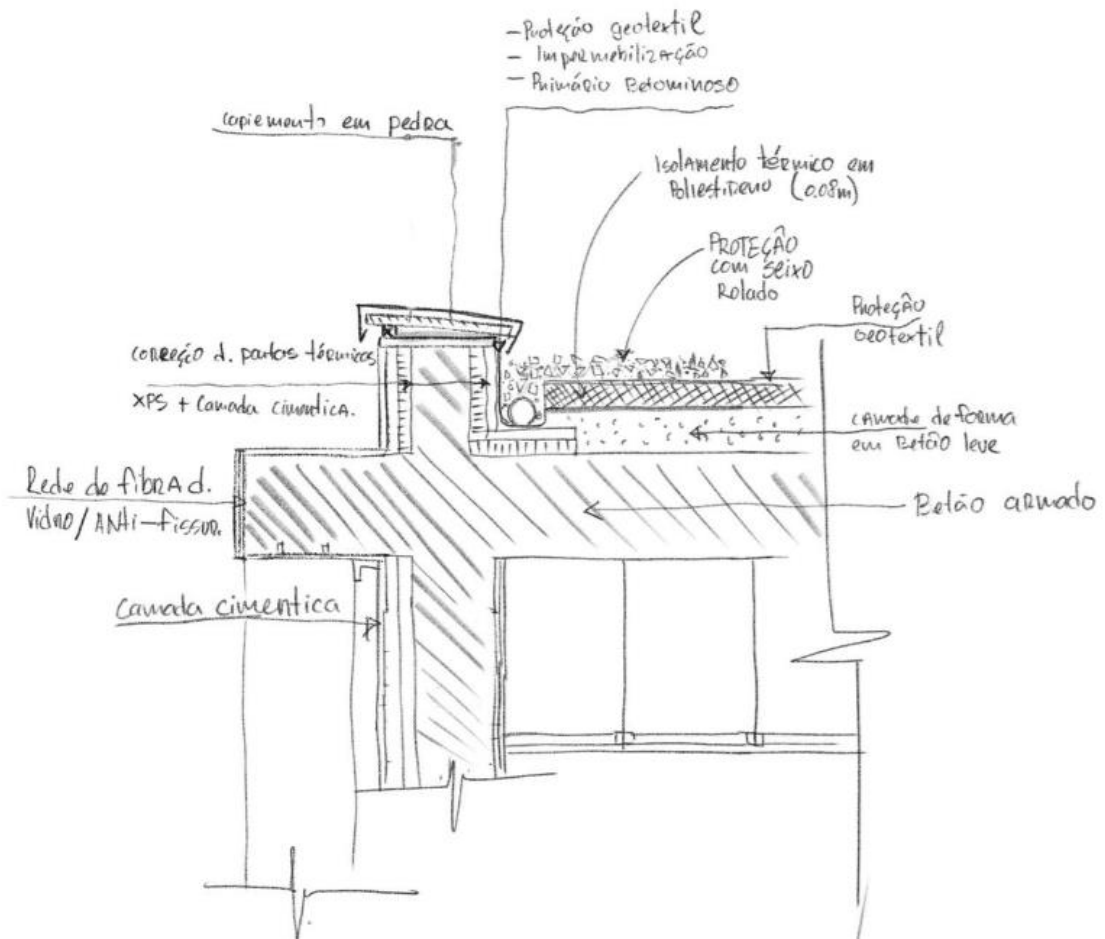 - Proteção geotextil
- Impermebilização
- Primário Betominoso
capiemento em pedra
Isolamento térmico em
Poliestireno (0.08m)
PROTEÇÃO
com seixo
Rolado
Proteção
geotextil
correção d. pontos térmicos
XPS + Camada cimentica.
camada de forma
em Betão leve
Rede de fibra d.
Vidro/Anti-fissur.
Betão armado
Camada cimentica